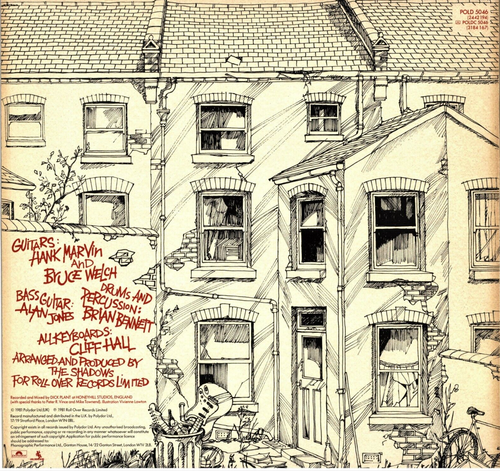 POLD 5046
(2442 194)
POLDC 5046
(3184 167)
GUITARS:
HANK MARVIN
AND
BRUCE WELCH
DRUMS AND
PERCUSSION:
BRIAN BENNETT
BASS GUITAR:
ALAN JONES
ALL KEYBOARDS:
CLIFF HALL
ARRANGED AND PRODUCED BY
THE SHADOWS
FOR ROLL OVER RECORDS LIMITED
Recorded and Mixed by DICK PLANT at HONEYHILL STUDIOS, ENGLAND
(with special thanks to Peter R. Vince and Mike Townend). Illustration Vivienne London
℗ 1981 Roll Over Records Limited
Record manufactured and distributed in the U.K. by Polydor Ltd,
17/19 Stratford Place, London W1N 0BL.
Copyright exists in all records issued by Polydor Ltd. Any unauthorised broadcasting,
public performance, copying or re-recording in any manner whatsoever will constitute
an infringement of such copyright. Application for public performance licence
should be addressed to:
Phonographic Performance Ltd., Ganton House, 14/22 Ganton Street, London W1V 1LB.
ENGLAND